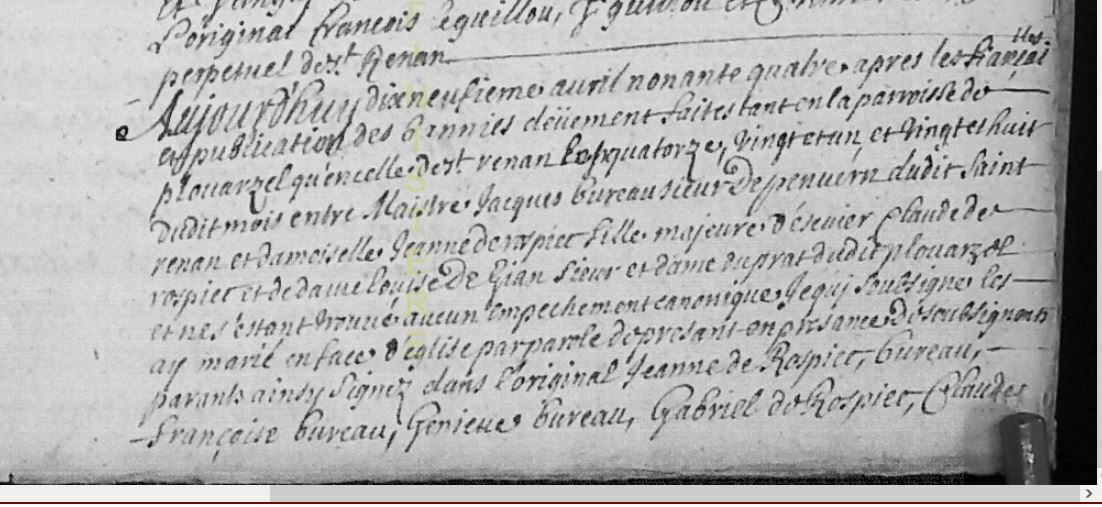 L'original francois Leguillou,
perpetuel de st Renan
Aujourd'huy dixneufieme avril nonante quatre apres les fiançailles
et publication des bannies deüement faites tant en la parroisse de
plouarzel qu'en celle de st renan les quatorze, vingt et un et vingt et huit
dudit mois entre Maistre Jacques bureau sieur de penuern dudit Saint
renan et damoiselle Jeanne de rospiec fille majeure d'escuier Claude de
rospiec et de dame Louise de Gian sieur et dame du prat dudit plouarzel
et ne s'estant trouvé aucun empechement canonique Je qui soubsigne les
ay marié en face d'eglise par parole de presant en presance de soubsignants
parants ainsy Signez dans l'original Jeanne de Rospiec, bureau,
françoise bureau, Genieue bureau, Gabriel de Rospiec, Claude